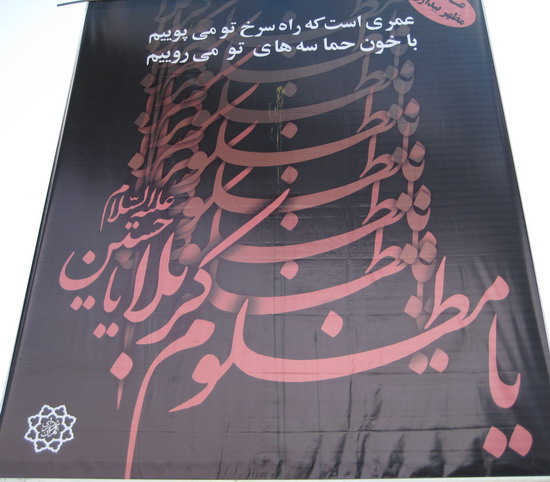 مظهر بیدار
عمری است که راه سرخ تو می پوییم
با خون حماسه های تو می روییم
یا مظلوم کربلا یا حسین علیه السلام